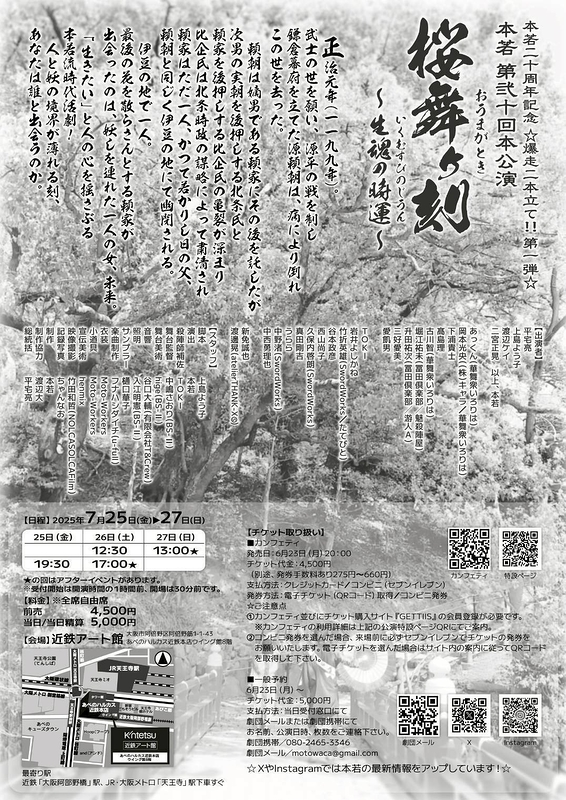 本若二十周年記念☆爆走二本立て!!第一弾☆
本若 第弐十回本公演
おうまがとき
桜舞ヶ刻
いくむすびのじうん
〜生魂の時運〜
正治元年(一一九九年)。
武士の世を願い、源平の戦を制し
鎌倉幕府を立てた源頼朝は、病により倒れ
この世を去った。
頼朝は嫡男である頼家にその後を託したが
次男の実朝を後押しする北条氏と
頼家を後押しする比企氏の亀裂が深まり
比企氏は北条時政の謀略によって粛清され
頼家はただ一人、かつて若かりし日の父、
頼朝と同じく伊豆の地にて幽閉される。
伊豆の地で一人。
最後の花を散らさんとする頼家が
出会ったのは、妖しを連れた一人の女、未来。
「生きたい」と人の心を揺さぶる
本若流時代活劇!
人と妖の境界が薄れる刻、
あなたは誰と出会うのか。
【出演者】
平宅亮
上島ようこ
渡辺大
二宮正晃 以上、本若
あっくん(華舞衆いろりは)
岡本光央(株・キャラ/華舞衆いろりは)
下浦貴士
高島理
古川智(華舞衆いろりは)
堀江祐未(冨田倶楽部 魅殺陣屋)
升田祐次(冨田倶楽部 游人A)
三好愛美
愛凱男
TOKI
岩井よしかね
竹折英雄(SwordWorks/たとひと)
谷本政彦
西山栄一
久保内啓朗(SwordWorks)
真田剛吉
うらら
中野亮(SwordWorks)
中西勇理也
新免誠也
渡邊晃(atelier THANK-X®)
【スタッフ】
脚本 上島ようこ
演出 本若
殺陣師補佐 TOKI
舞台監督 中嶋さおり(BS-II)
舞台美術 inger(BS-II)
音響 谷口大輔(有限会社T&Crew)
照明 入江明憲(BS-II)
サンプラー 樋口華子
楽曲制作 フナハシダイチ(u-full)
衣装 Moto-Workers
小道具 Moto-Workers
宣伝美術 hemmix
映像撮影 竹田和哲(NOLCASOLCAFilm)
記録写真 ちゃんなお
制作 本若
制作協力 渡辺大
総統括 平宅亮
【日程】2025年7月25日(金)▶27日(日)
25日(金) 26日(土) 27日(日)
12:30 13:00★
19:30 17:00★
★の回はアフターイベントがあります。
※受付開始は開演時間の1時間前、開場は30分前です。
【料金】※全席自由席
前売り 4,500円
当日/当日精算 5,000円
【会場】近鉄アート館
大阪市阿倍野区阿倍野筋1-1-43
あべのハルカス近鉄本店ウイング館8階
JR天王寺駅
天王寺ミオ
あべのハルカス
近鉄本店
あべの
キューズタウン
Kintetsu
近鉄アート館
最寄り駅
近鉄「大阪阿部野橋」駅、JR・大阪メトロ「天王寺」駅下車すぐ
【チケット取り扱い】
■カンフェティ
発売日:6月23日(月)20:00
チケット代金:4,500円
(別途、発券手数料あり275円〜660円)
支払方法:クレジットカード/コンビニ(セブンイレブン)
発券方法:電子チケット(QRコード)取得/コンビニ発券
☆ご注意点
①カンフェティ並びにチケット購入サイト『GETTIIS』の会員登録が必要です。
※カンフェティの利用詳細は上記の公演特設ページQRにてご案内。
②コンビニ発券を選んだ場合、来場前に必ずセブンイレブンでチケットの発券を
お願いいたします。電子チケットを選んだ場合はサイト内の案内に従ってQRコード
を取得して下さい。
カンフェティ
特設ページ
■一般予約
6月23日(月)〜
チケット代金:5,000円
支払方法:当日受付窓口にて
劇団メールまたは劇団携帯にて
お名前、公演日時、枚数をご連絡下さい。
劇団携帯/080-2465-3346
劇団メール/motowaca@gmail.com
劇団メール
X
Instagram
☆XやInstagramでは本若の最新情報をアップしています!☆